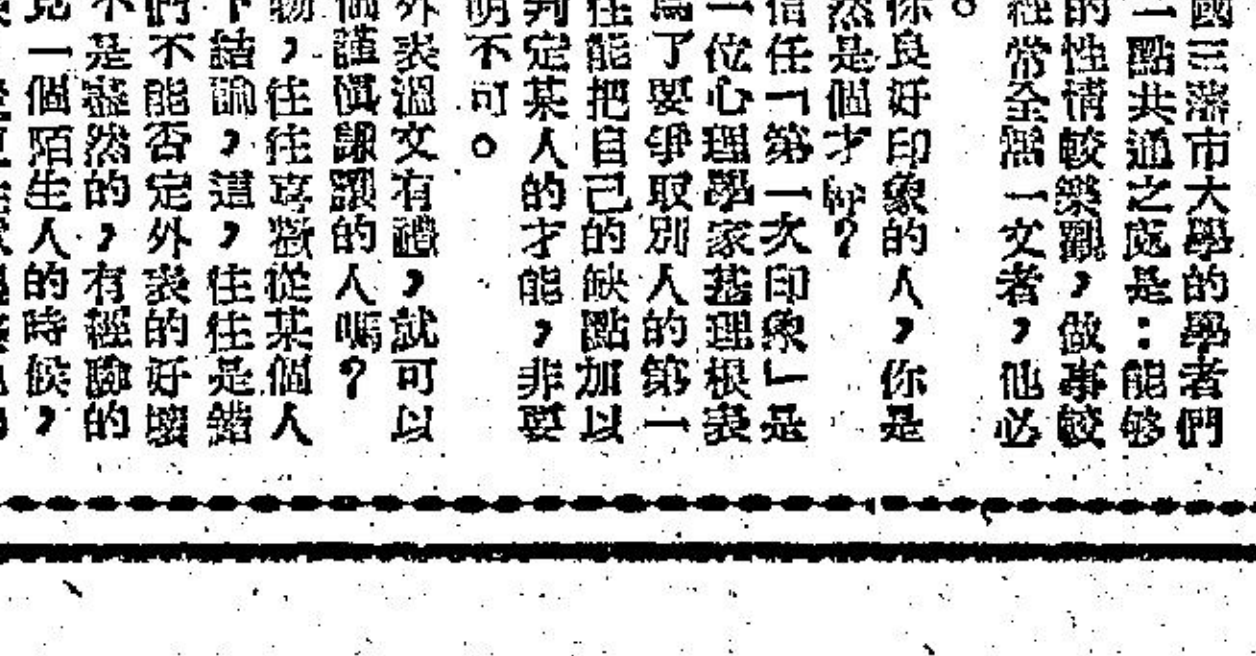 國三藩市大學的學者們
一點共通之處是：能够
的性情較樂觀，做事較
經常全無一文者，他必
。
你良好印象的人，你是
然是個才
信任「第一次印象」是
一位心理學家基理根表
爲了要爭取別人的第一
往能把自己的缺點加以
判定某人的才能，非要
明不可。
外表溫文有禮，就可以
個謹慎謙讓的人嗎？
物，往往喜歡從某個人
下結論，這，往往是錯
們不能否定外表的好壞
不是盡然的，有經驗的
見一個陌生人的時候，